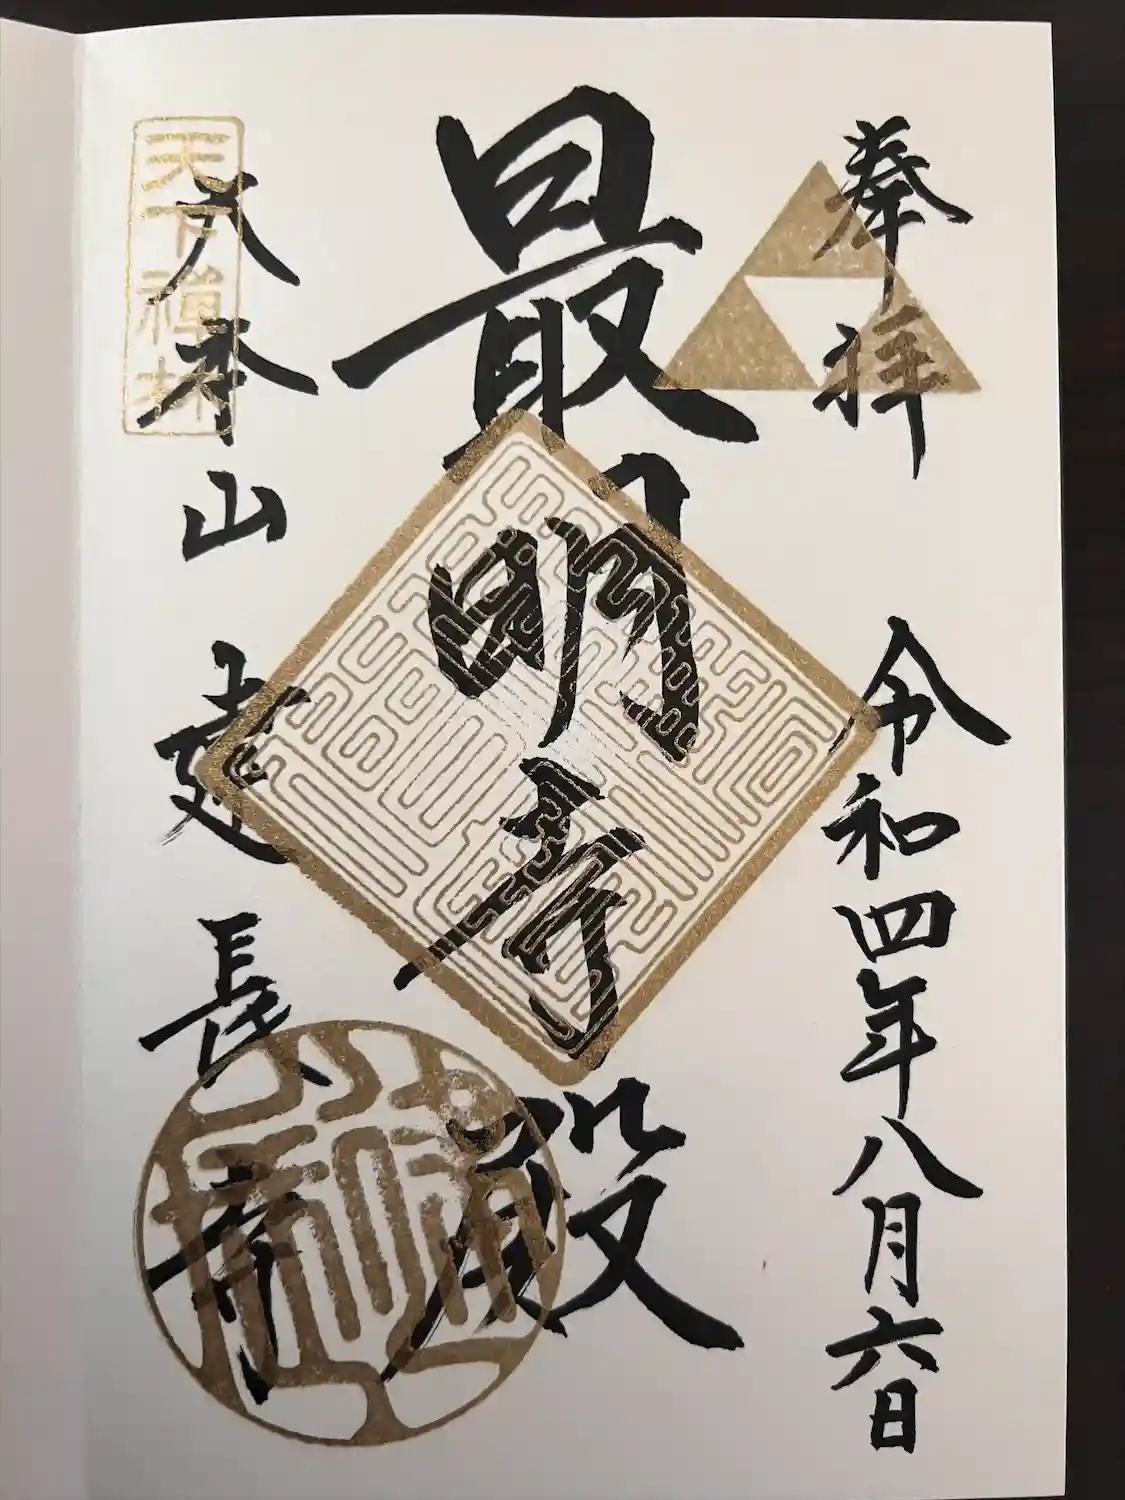 奉拝
令和四年八月六日
最明寺殿
大本山
建長寺
天下禅林